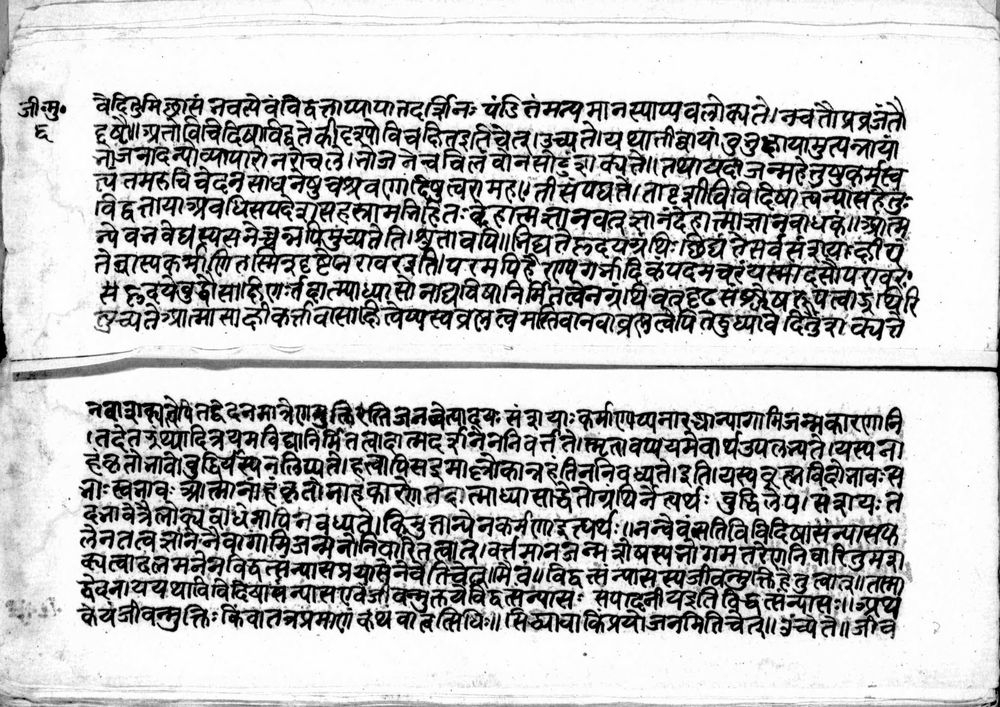 जी॰मु॰
६
वेदितुमिछासंनवत्येवंविद्वत्ताप्यापातदर्शिनः पंडितंमन्यमानस्याप्यवलोक्यते। नचतौप्रव्रजंतौ
दृष्टौ॥ अतोविविदिषाविद्वतेकीदृश्यौविवक्षितेइतिचेत्। उच्यते। यथातीव्रायांबुभुक्षायामुत्पन्नायां
भोजनादन्योव्यापारोनरोचते। भोजनेचविलंबोनसोढुंशक्यते॥ तथायदाजन्महेतुषुकर्मस्व
त्यंतमरुचिर्वेदनसाधनेषुचश्रवणादिषुत्वरामहतीसंपद्यते। तादृशीविविदिषासंन्यासहेतुः
विद्वत्तायाअवधिरुपदेशसाहस्र्यामभिहितः देहात्मज्ञानवतज्ञानंदेहात्मज्ञानबाधकं॥ आत्म
न्येवनवेद्यस्यसनेच्छन्नपिमुच्यतेति। श्रुतावपि॥ भिद्यतेहृदयग्रंथिः छिद्यंतेसर्वसंशयाः क्षीयं
तेचास्यकर्माणितस्मिन्दृष्टेपरावरइति। परमपिहैरण्यगर्भादिकंपदमवरंयस्मादसौपरावरः
सहृदयेबुद्धौसाक्षिणस्तादात्म्याध्यासोनाद्यविद्यानिर्मितत्वेनग्रंथिवतदृढसंश्लेषरूपत्वाद्ग्रंथिरि
त्युच्यते आत्मासाक्षीकर्तावासाक्षित्वेप्यस्यब्रह्मत्वमस्तिवानवाब्रह्मत्वेपितद्बुध्यावेदितुंशक्यते
नवाशक्यत्वेपितद्वेदनमात्रेणमुक्तिरस्तिनवेत्यादयः संशयाः कर्माण्यप्यनारब्धान्यागामिजन्मकारणानि
तदेतद्ग्रंथ्यादित्रयमविद्यानिर्मितत्वादात्मदर्शनेननिवर्तते। स्मृतावप्ययमेवार्थउपलभ्यते। यस्यना
हंकृतोभावोबुद्धिर्यस्यनलिप्यते। हत्वापिसइमाल्लोकान्नहंतिननिबध्यते। इति। यस्यब्रह्मविदोभावः स
त्ताः स्वभावः आत्मानाहंकृतोनाहंकारेणतादात्म्याध्यासाद्धेतोग्रंथिर्नेत्यर्थः बुद्धिलेपः संशयः त
दभावेत्रैलोक्यवधेनापिनबध्यते। किमुतान्येनकर्मणाइत्यर्थः॥ नन्वेवंसतिविविदिषासंन्यासफ
लेनतत्वज्ञानेनैवागामिजन्मनोनिवारितत्वात। वर्तमानजन्मशेषस्यभोगमंतरेणनिवारितुमश
क्यत्वादलमनेनविद्वत्संन्यासप्रयासेनेवेतिचेत्॥ मैवं॥ विद्वत्संन्यासस्यजीवन्मुक्तिहेतुत्वात॥ तस्मा
द्वेदनाययथाविविदिषासंन्यासएवंजीवन्मुक्तयेविद्वत्संन्यासः संपादनीयइतिविद्वत्संन्यासः॥ अथ
केयंजीवन्मुक्तिः किंवातत्रप्रमाणंकथंवातत्सिधिः॥ सिध्यावाकिंप्रयोजनमितिचेत्॥ उच्यते॥ जीव